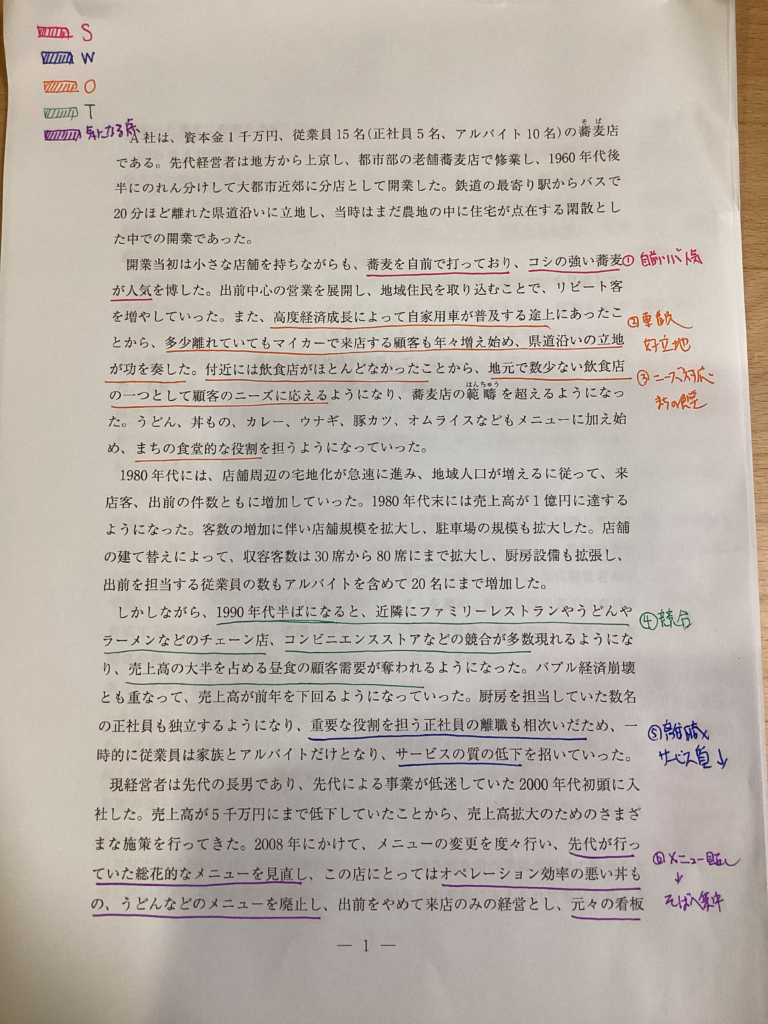 S
W
O
T
気になる点
そば
A社は、資本金1千万円、従業員15名(正社員5名、アルバイト10名)の蕎麦店
である。先代経営者は地方から上京し、都市部の老舗蕎麦店で修業し、1960年代後
半にのれん分けして大都市近郊に分店として開業した。鉄道の最寄り駅からバスで
20分ほど離れた県道沿いに立地し、当時はまだ農地の中に住宅が点在する閑散とし
た中での開業であった。
開業当初は小さな店舗を持ちながらも、蕎麦を自前で打っており、コシの強い蕎麦
① 自前、人気
が人気を博した。出前中心の営業を展開し、地域住民を取り込むことで、リピート客
を増やしていった。また、高度経済成長によって自家用車が普及する途上にあったこ
とから、多少離れていてもマイカーで来店する顧客も年々増え始め、県道沿いの立地
② 車
好立地
が功を奏した。付近には飲食店がほとんどなかったことから、地元で数少ない飲食店
③ ニーズ対応
の一つとして顧客のニーズに応えるようになり、蕎麦店の範疇を超えるようになっ
はんちゅう
た。うどん、丼もの、カレー、ウナギ、豚カツ、オムライスなどもメニューに加え始
め、まちの食堂的な役割を担うようになっていった。
1980年代には、店舗周辺の宅地化が急速に進み、地域人口が増えるに従って、来
店客、出前の件数ともに増加していった。1980年代末には売上高が1億円に達する
ようになった。客数の増加に伴い店舗規模を拡大し、駐車場の規模も拡大した。店舗
の建て替えによって、収容客数は30席から80席にまで拡大し、厨房設備も拡張し、
出前を担当する従業員の数もアルバイトを含めて20名にまで増加した。
しかしながら、1990年代半ばになると、近隣にファミリーレストランやうどんや
④ 競合
ラーメンなどのチェーン店、コンビニエンスストアなどの競合が多数現れるようにな
り、売上高の大半を占める昼食の顧客需要が奪われるようになった。バブル経済崩壊
とも重なって、売上高が前年を下回るようになっていった。厨房を担当していた数名
の正社員も独立するようになり、重要な役割を担う正社員の離職も相次いだため、一
⑤ 離職
時的に従業員は家族とアルバイトだけとなり、サービスの質の低下を招いていった。
サービス質↓
現経営者は先代の長男であり、先代による事業が低迷していた2000年代初頭に入
社した。売上高が5千万円にまで低下していたことから、売上高拡大のためのさまざ
まな施策を行ってきた。2008年にかけて、メニューの変更を度々行い、先代が行っ
ていた総花的なメニューを見直し、この店にとってはオペレーション効率の悪い丼も
⑥ メニュー見直し
↓
の、うどんなどのメニューを廃止し、出前をやめて来店のみの経営とし、元々の看板
そばへ集中
― 1 ―